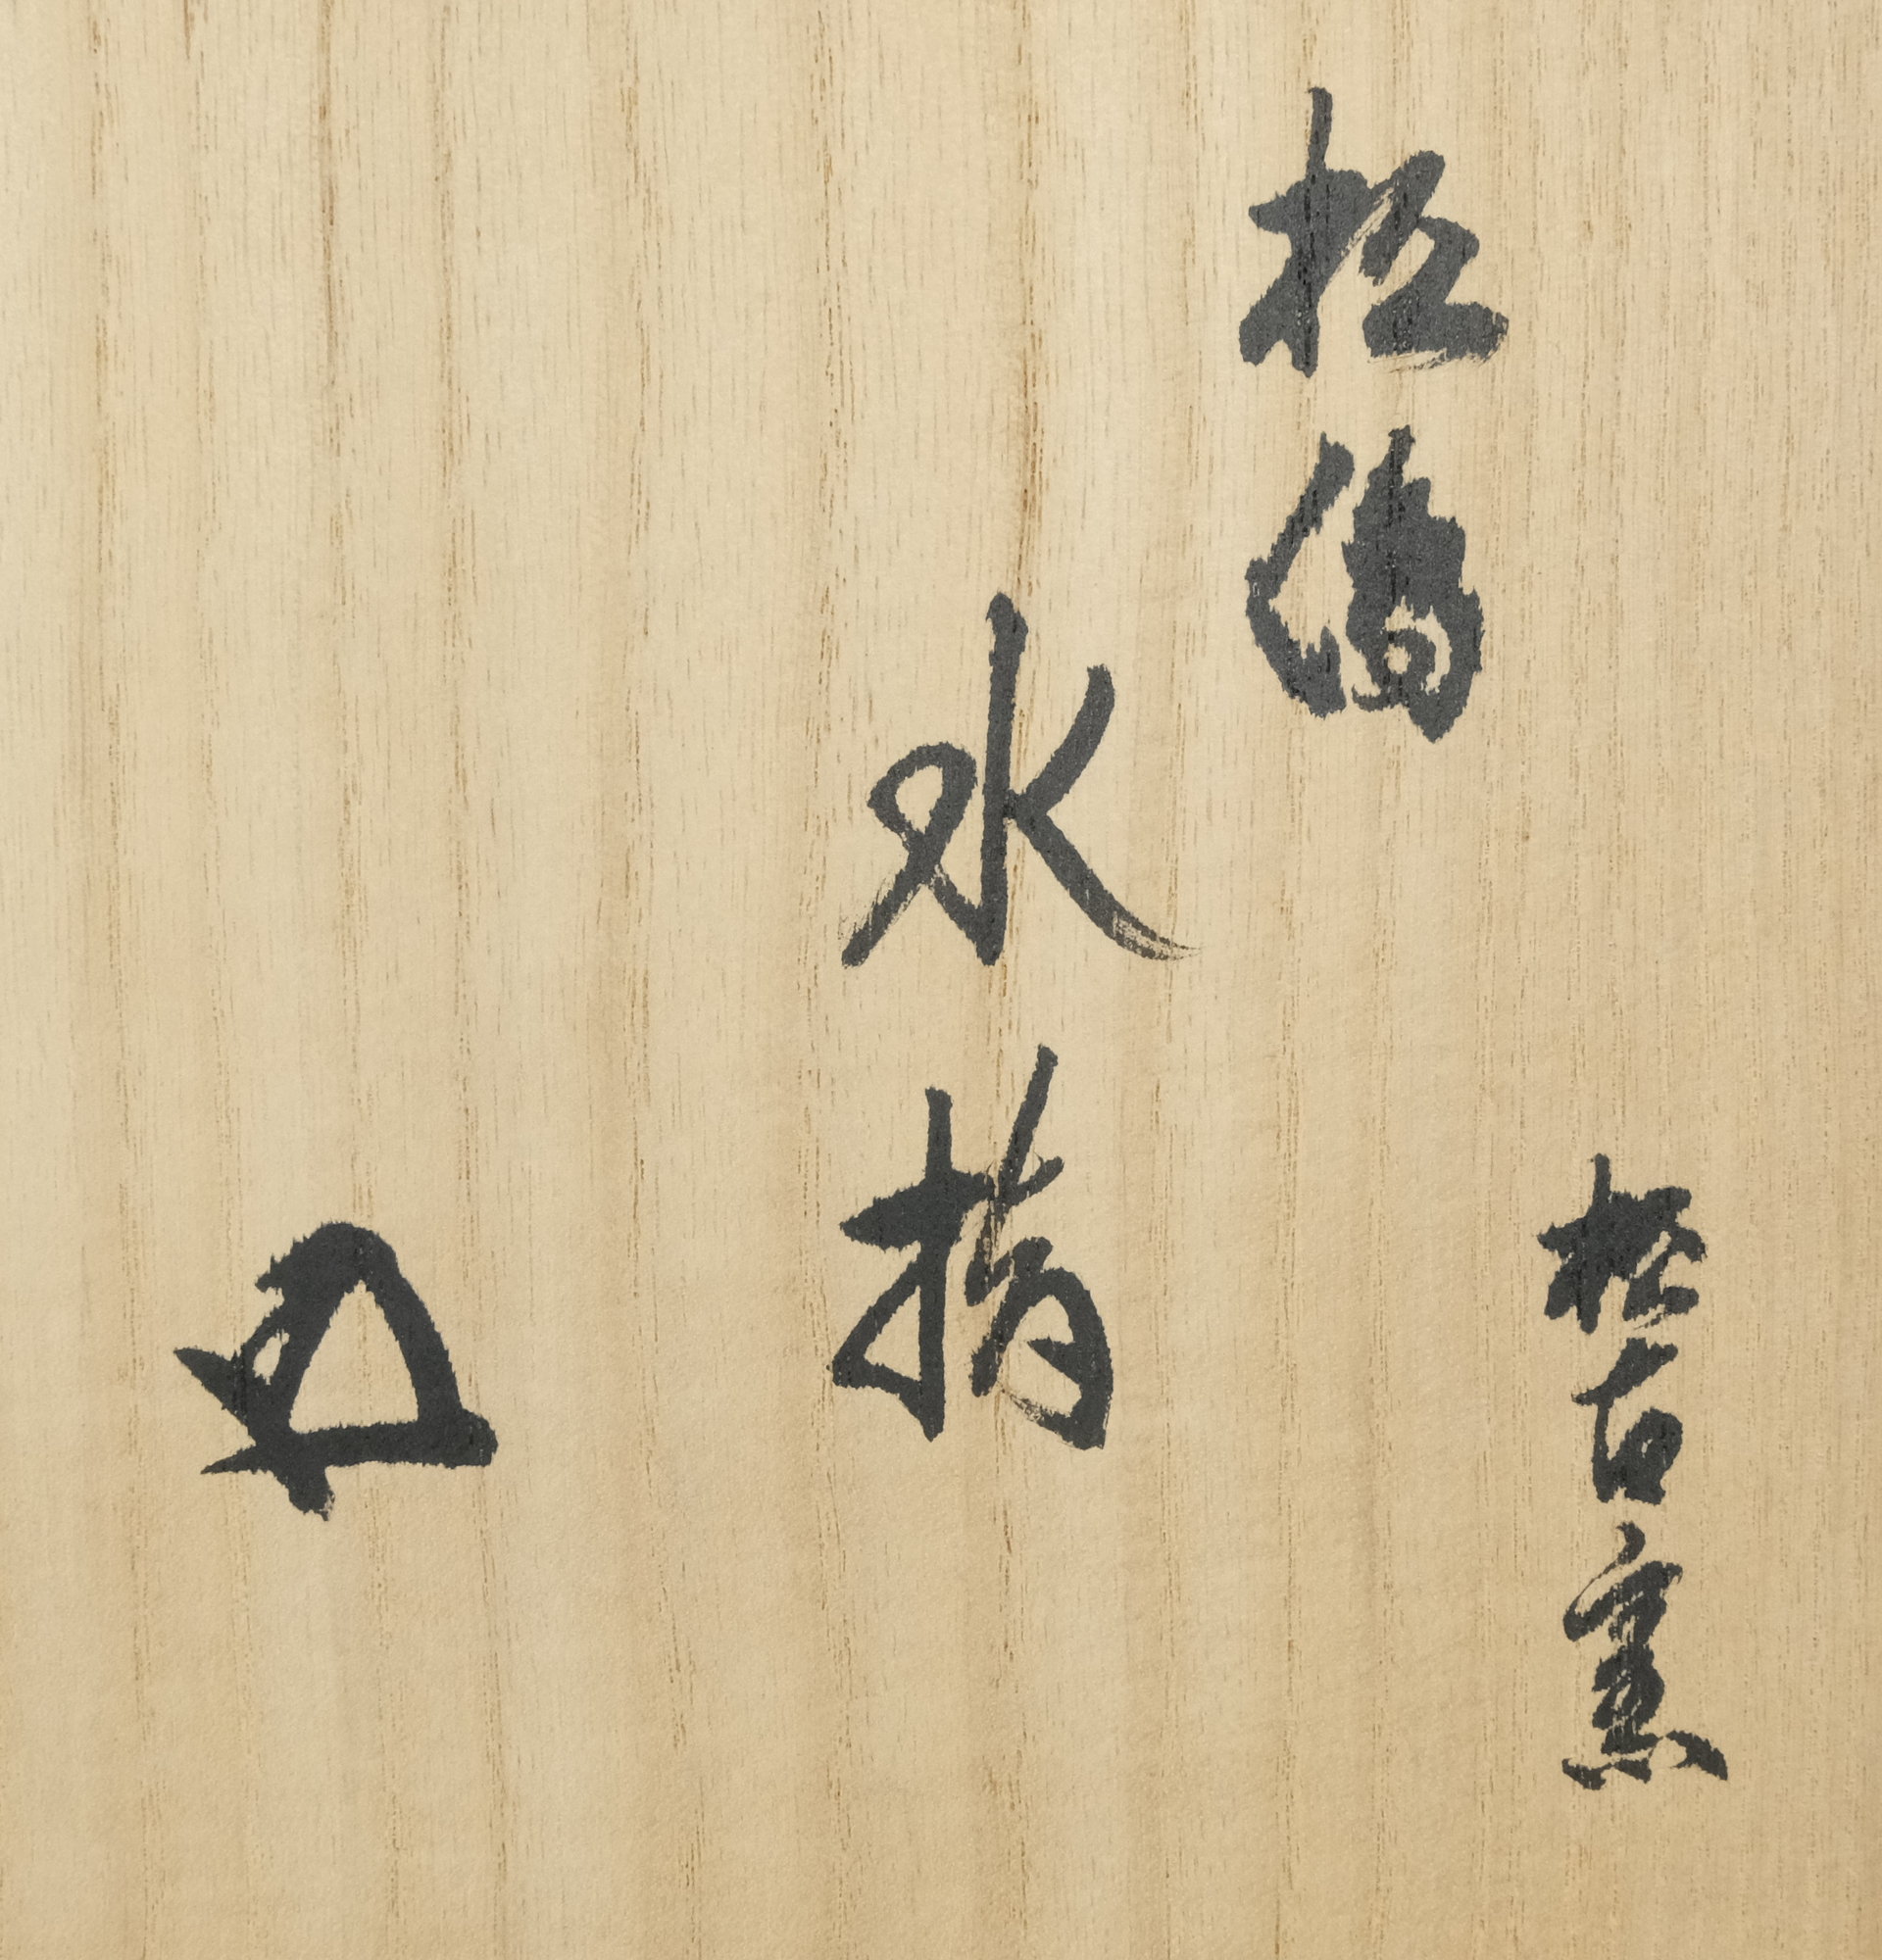 松
水指
松古窯